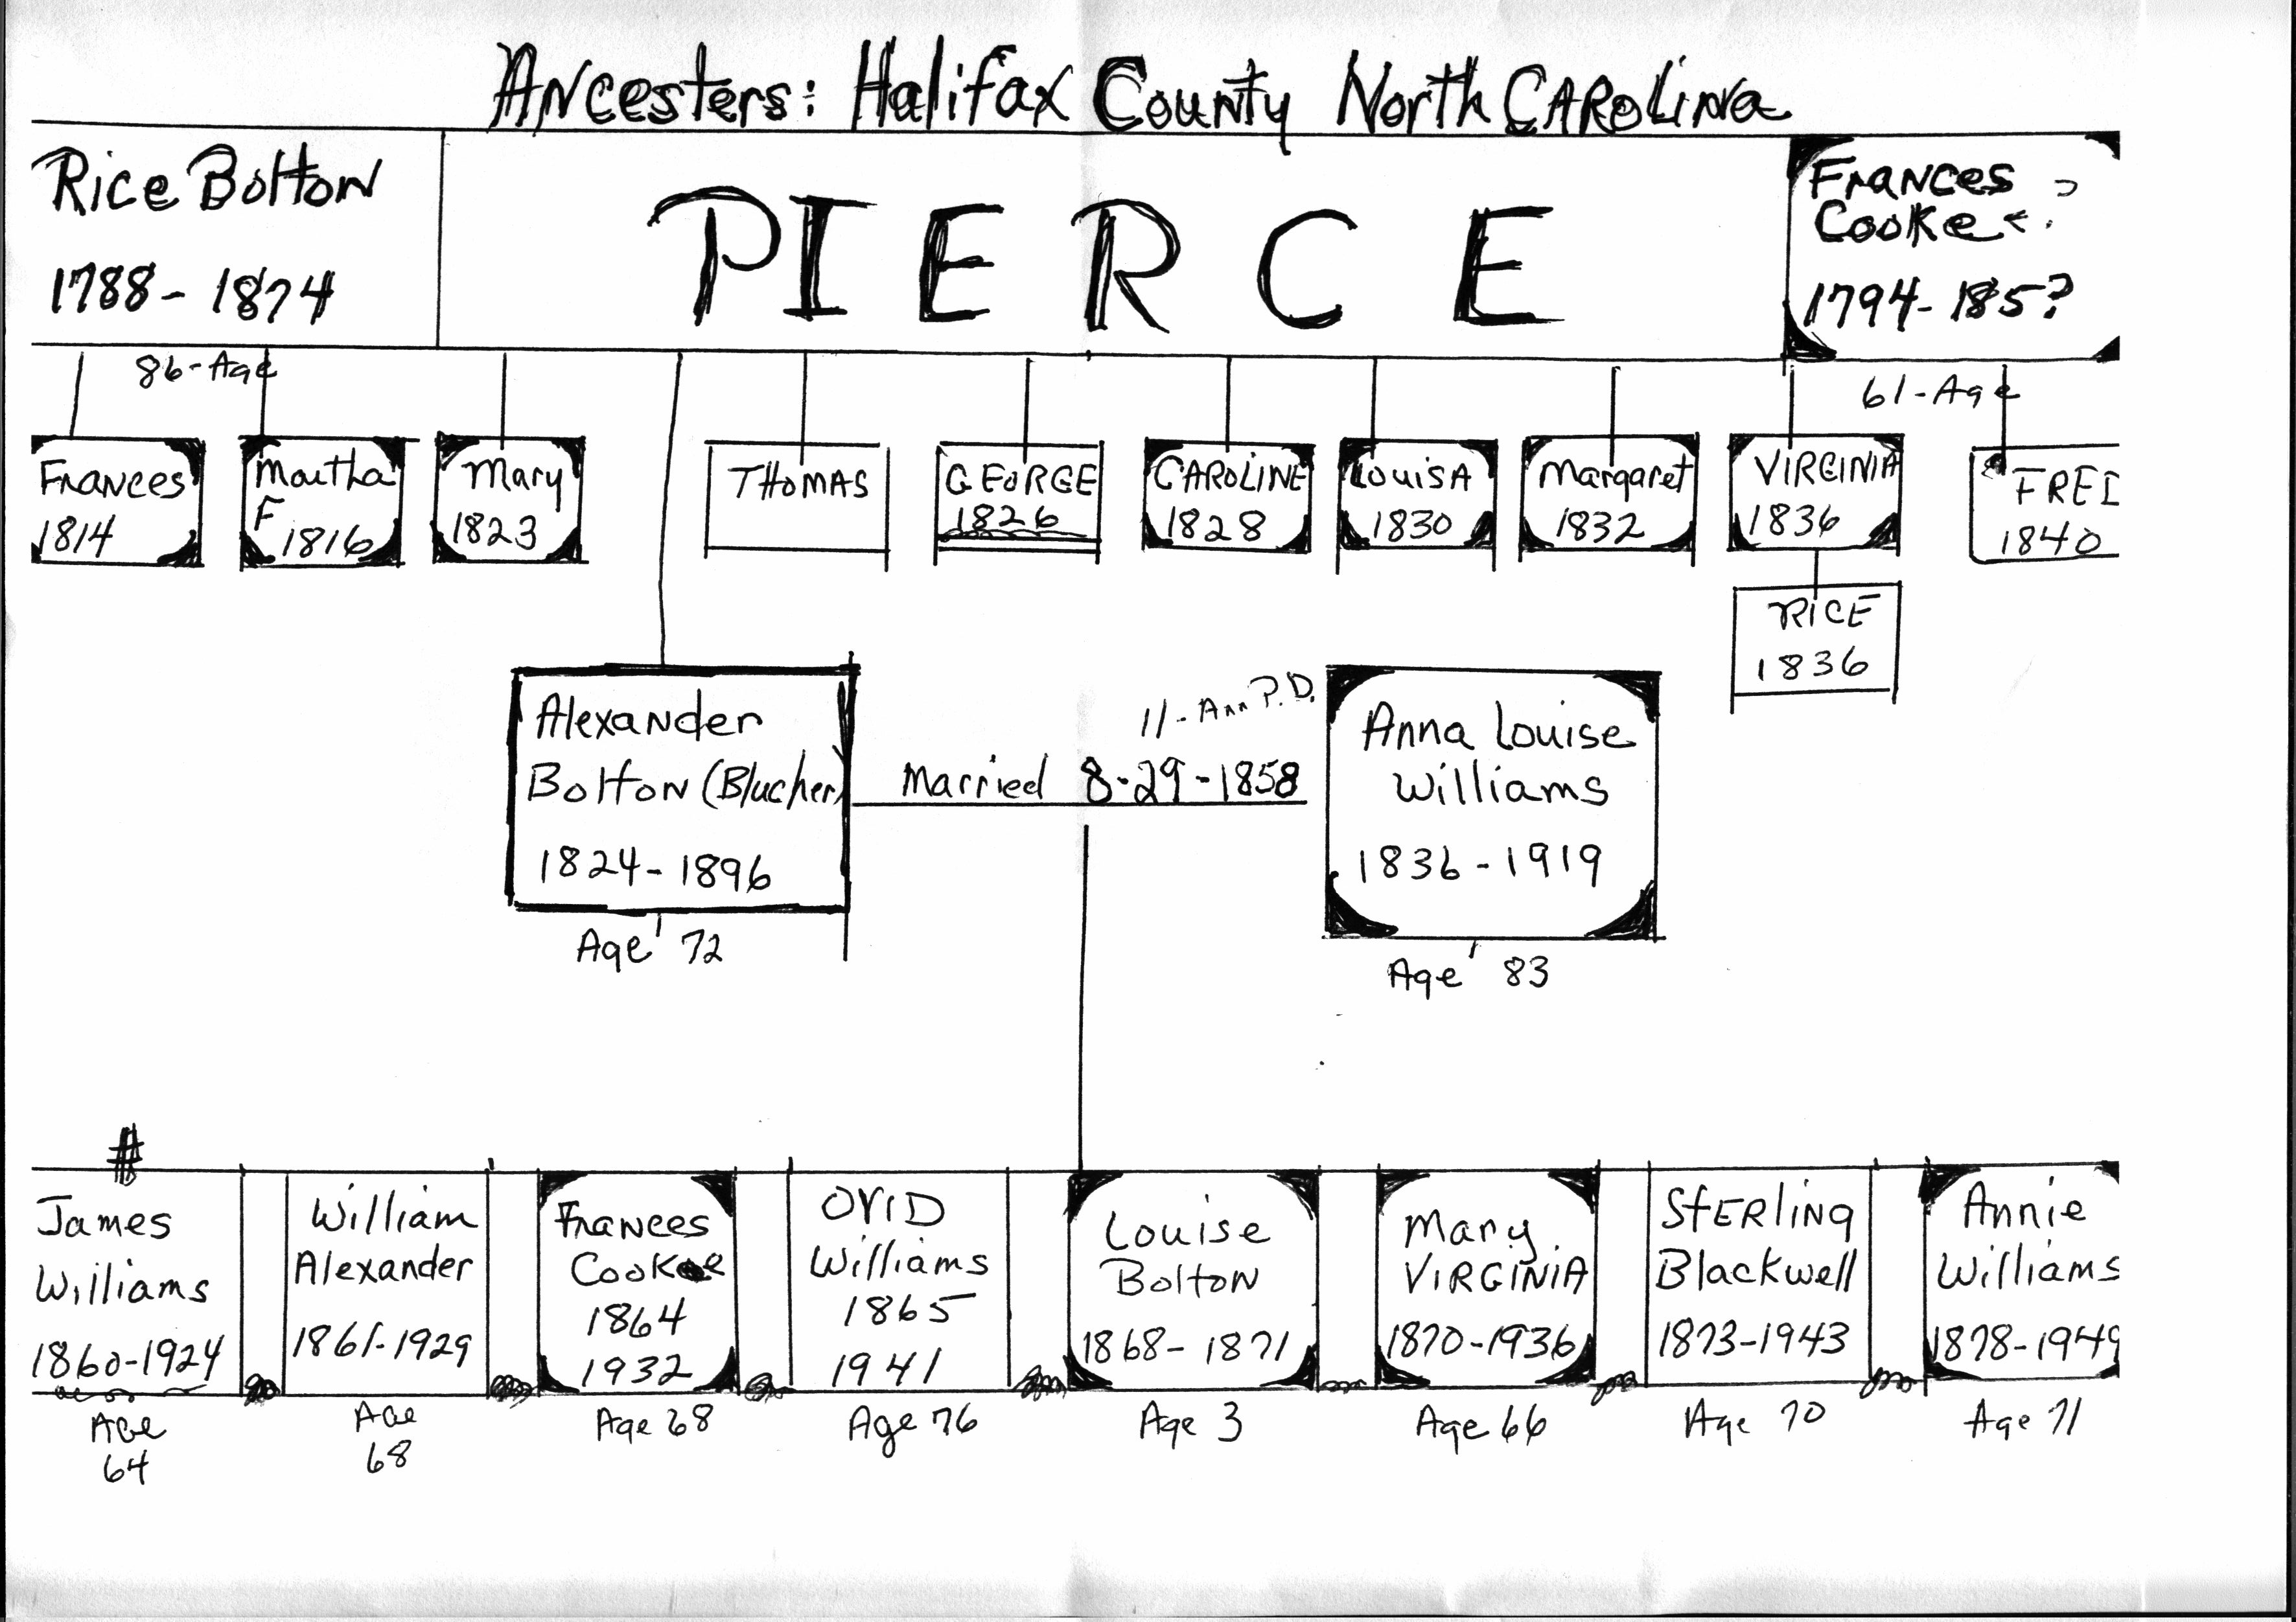 Ancesters: Halifax County North Carolina
Rice Bolton
1788 - 1874
PIERCE
Frances ?
Cooke
1794 - 185?
86 - Age
61 - Age
Frances
1814
Martha
F
1816
Mary
1823
THOMAS
GEORGE
1826
CAROLINE
1828
LouisA
1830
Margaret
1832
VIRGINIA
1836
FRED
1840
RICE
1836
Alexander
Bolton (Blucher)
1824 - 1896
Age 72
11 - Ann P.D.
Married 8-29-1858
Anna Louise
Williams
1836 - 1919
Age 83
#
James
Williams
1860-1924
Age
64
William
Alexander
1861-1929
Age
68
Frances
Cooke
1864
1932
Age 68
OVID
Williams
1865
1941
Age 76
Louise
Bolton
1868 - 1871
Age 3
Mary
VIRGINIA
1870-1936
Age 66
StERling
Blackwell
1873-1943
Age 70
Annie
Williams
1878-1949
Age 71